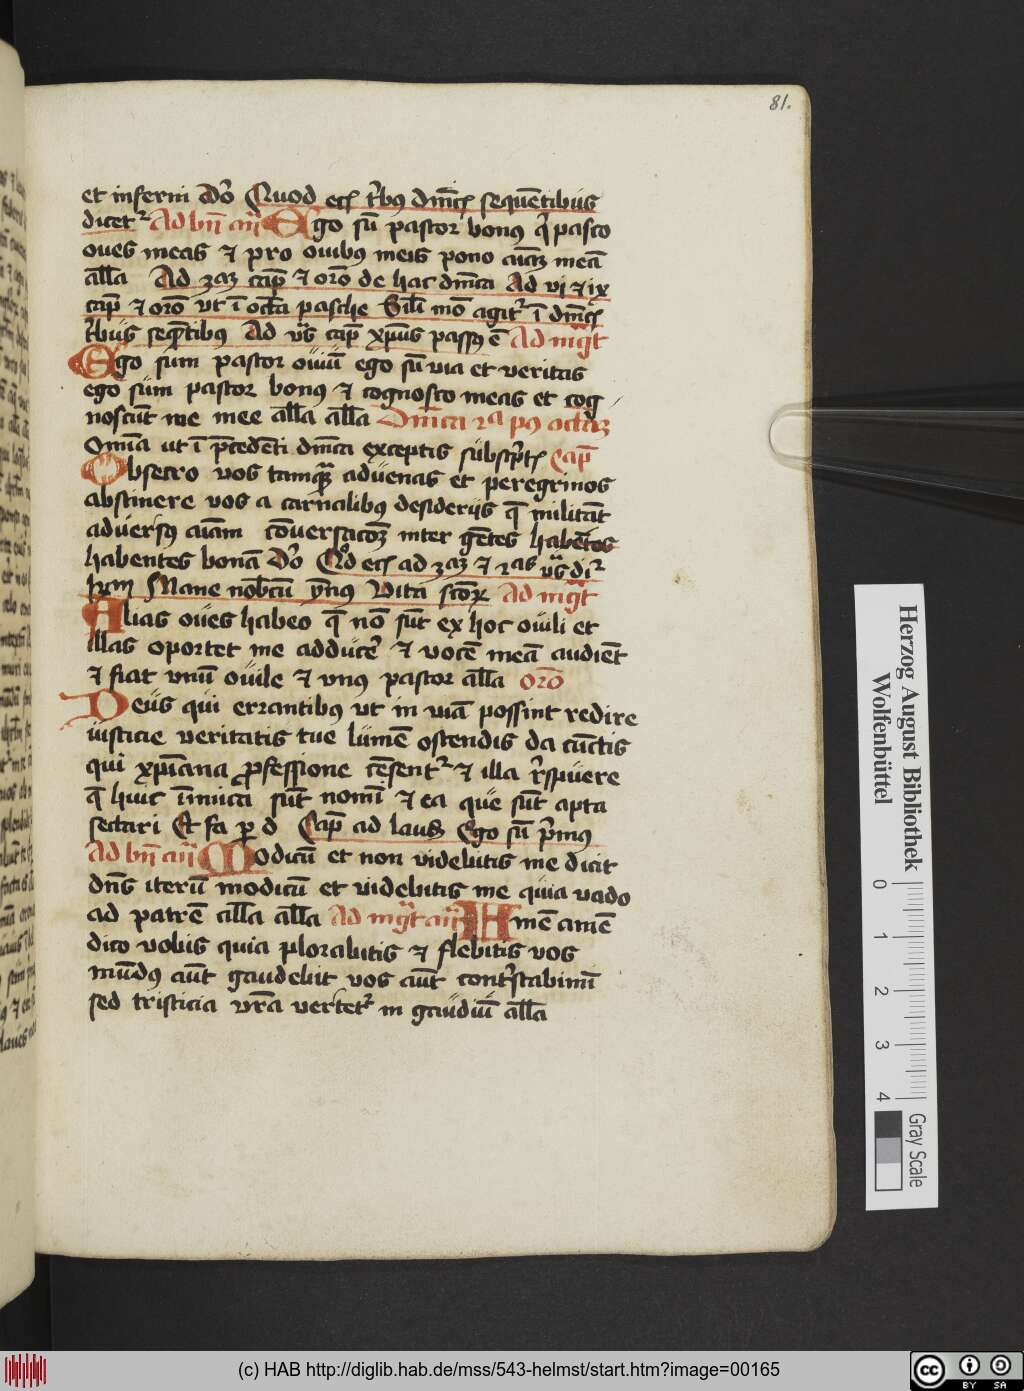 81.
et inferni do᷎ Quod ec̄ t̄bus dn̄ic̄ sequētibus
dicetr Ad bn̄ an̄ Ego sū pastor bonus q̄ pasco
oues meas et pro ouibus meis pono aīaz meā
all̄a Ad 3az cap̄ et orō de hac dn̄ica Ad vi et ix
cap̄ et orō vt ī octa pasche Sil̄i mō agitr ī dn̄ic̄
t̄bus seqētibus Ad v̄s cap̄ xp̄us passus ē Ad mgt
Ego sum pastor ouiū ego sū via et veritas
ego sum pastor bonus et cognosco meas et cog
noscūt me mee all̄a all̄a Dn̄ica 2a pus octaz
Omīa ut ī p̄cedēti dn̄ica exceptis subscp̄t Cap̄
Obsecro vos tamqz aduenas et peregrinos
abstinere vos a carnalibus desideriis q̄ militāt
aduersus aīam cōuersacōz inter gētes habētes
habentes bonā do᷎ Qd ec̄ ad 3az et 2as v̄s dir
Mane nob̄cū ympnus Vita scōrz Ad mgt
Alias oues habeo q̄ nō sūt ex hoc ouili et
illas oportet me adducē et vocē meā audiēt
et fiat vnū ouile et vnus pastor all̄a orō
Deus qui errantibus vt in viā possint redire
iusticie veritatis tue lumē ostendis da cūctis
qui xp̄iana professione cēsentr et illa r̄spuere
q̄ huic īmica sūt nomī et ea que sūt apta
sectari Et fa p d Cap̄ ad laud Ego sū p̄mus
Ad bn̄ an̄ Modicū et non videbitis me dicit
dn̄s iterū modicū et videbitis me quia vado
ad patrē all̄a all̄a Ad mgt an̄ Amē amē
dico vobis quia plorabitis et flebitis vos
mūdus aūt gaudebit vos aūt contr̄stabimī
sed tristicia vr̄a vertetr in gaudiū all̄a
Herzog August Bibliothek
Wolfenbüttel
0 1 2 3 4
Gray Scale
(c) HAB http://diglib.hab.de/mss/543-helmst/start.htm?image=00165
cc BY SA